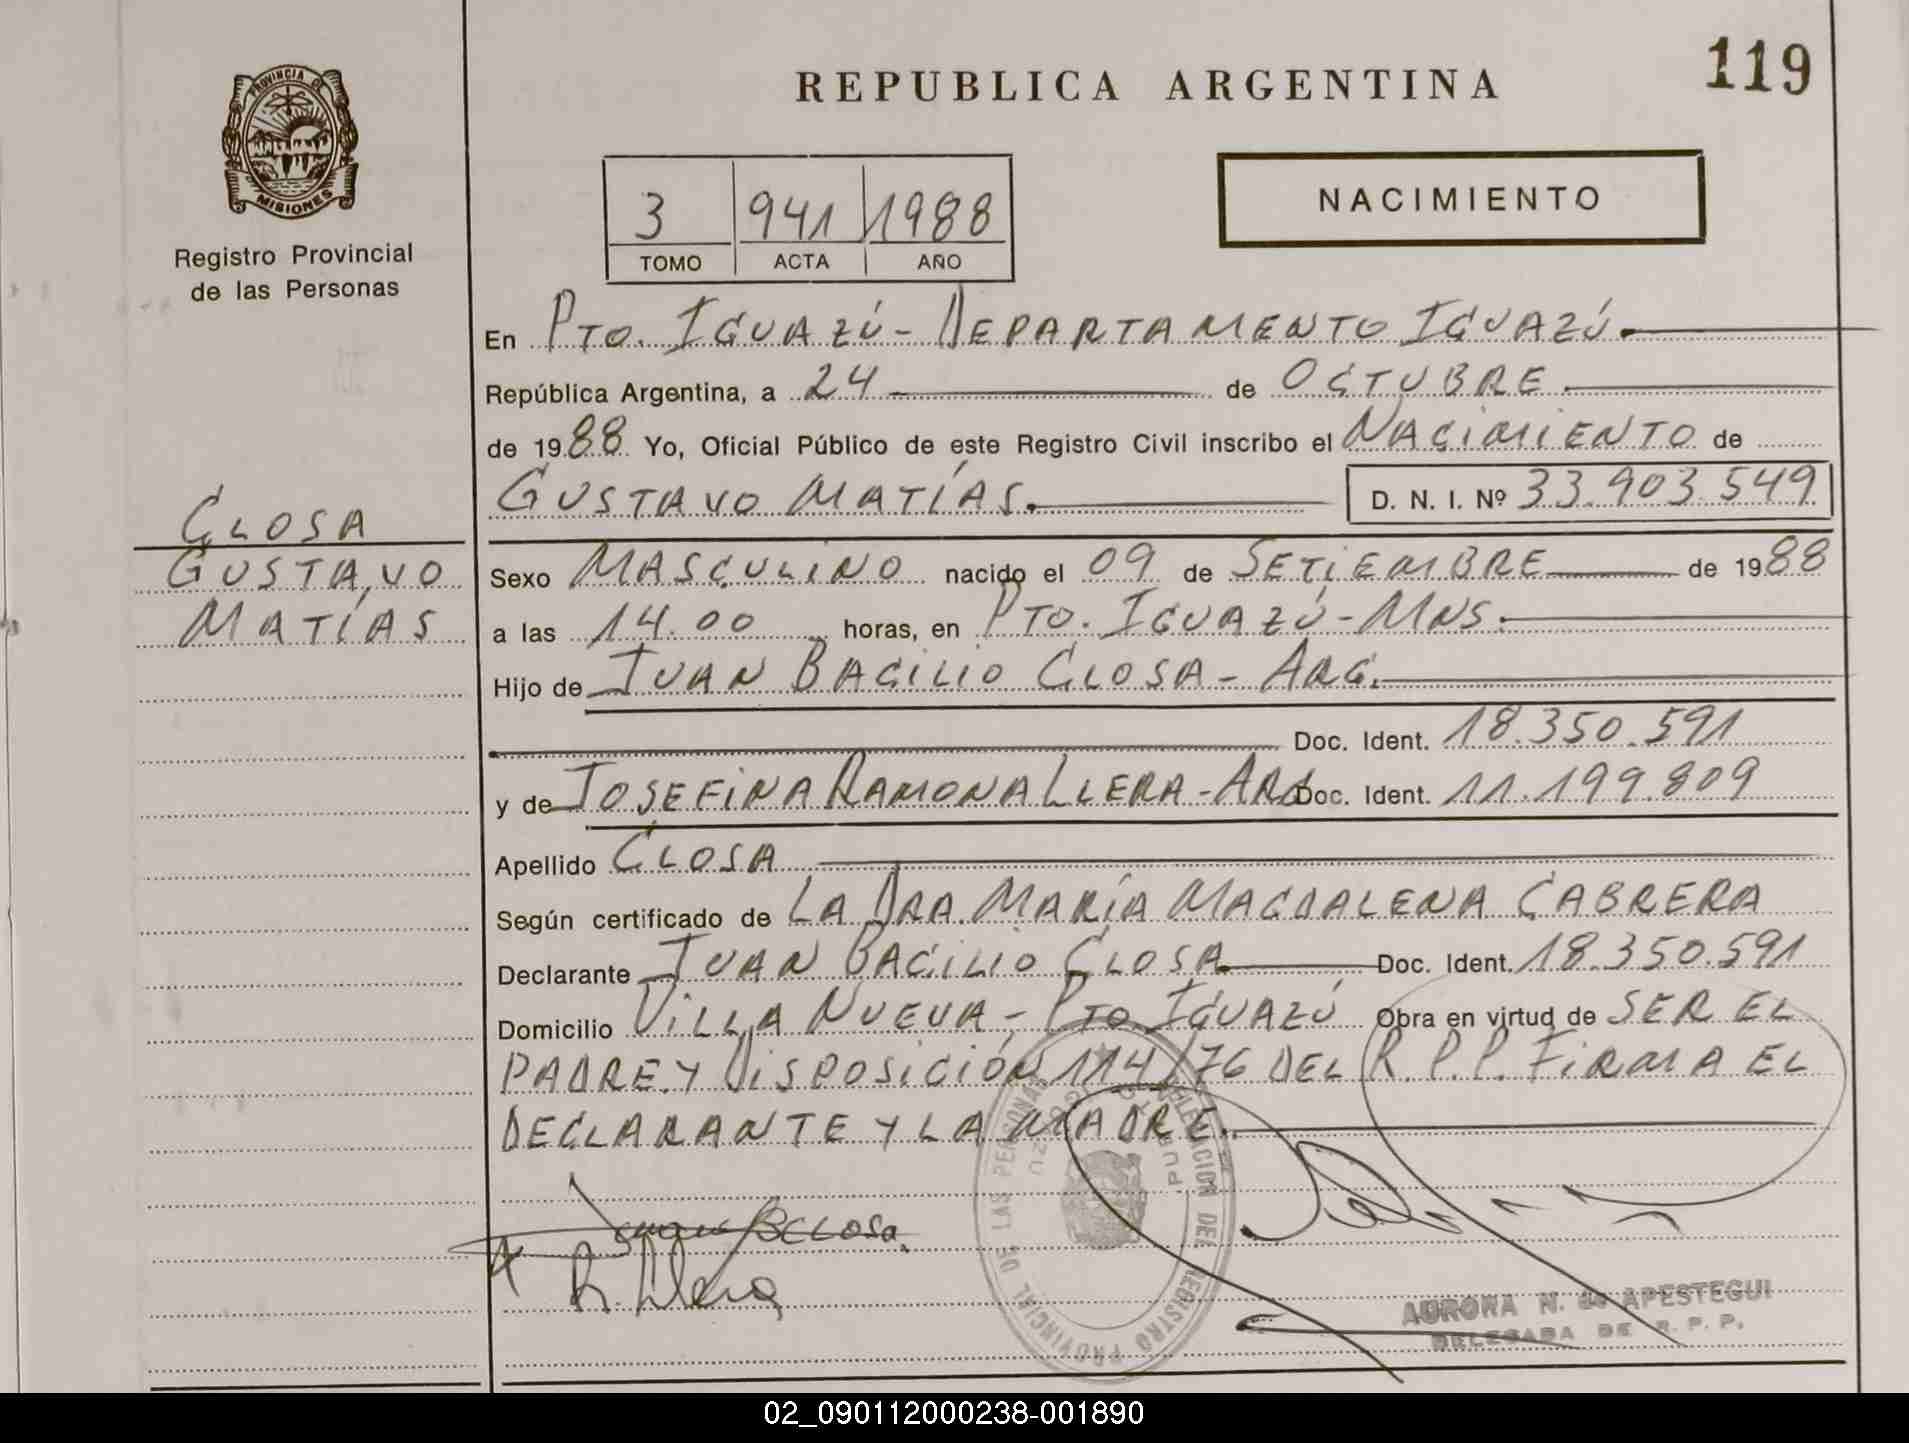 119
REPUBLICA ARGENTINA
PROVINCIA DE
MISIONES
Registro Provincial
de las Personas
NACIMIENTO
3 941 1988
TOMO ACTA AÑO
En PTO. IGUAZÚ - DEPARTAMENTO IGUAZÚ.
República Argentina, a 24 de OCTUBRE
de 1988 Yo, Oficial Público de este Registro Civil inscribo el NACIMIENTO de
GUSTAVO MATÍAS. D. N. I. Nº 33.903.549
CLOSA
GUSTAVO
MATÍAS
Sexo MASCULINO nacido el 09 de SETIEMBRE de 1988
a las 14.00 horas, en PTO. IGUAZÚ - MNS.
Hijo de JUAN BACILIO CLOSA - ARG.
Doc. Ident. 18.350.591
y de JOSEFINA RAMONA LLERA - ARG Doc. Ident. 11.199.809
Apellido CLOSA
Según certificado de LA DRA. MARÍA MAGDALENA CABRERA
Declarante JUAN BACILIO CLOSA Doc. Ident. 18.350.591
Domicilio VILLA NUEVA - PTO. IGUAZÚ Obra en virtud de SER EL
PADRE Y DISPOSICIÓN 114/76 DEL R.P.P. FIRMA EL
DECLARANTE Y LA MADRE.
DELEGACION DEL REGISTRO PROVINCIAL DE LAS PERSONAS
R. Llera
AURORA N. de APESTEGUI
DELEGADA DE R. P. P.
02_090112000238-001890